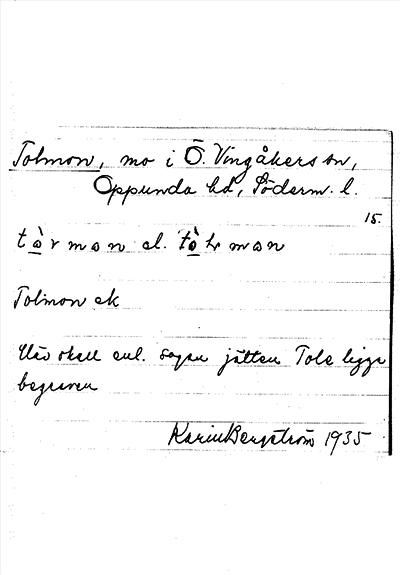 Tolmon, mo i Ö. Vingåkers sn,
Oppunda hd, Söderm. l.
15.
tòrmon el. tòlmon
Tolmon ek
Här skall enl. sagan jätten Tole ligga
begraven
Karin Bergström 1935